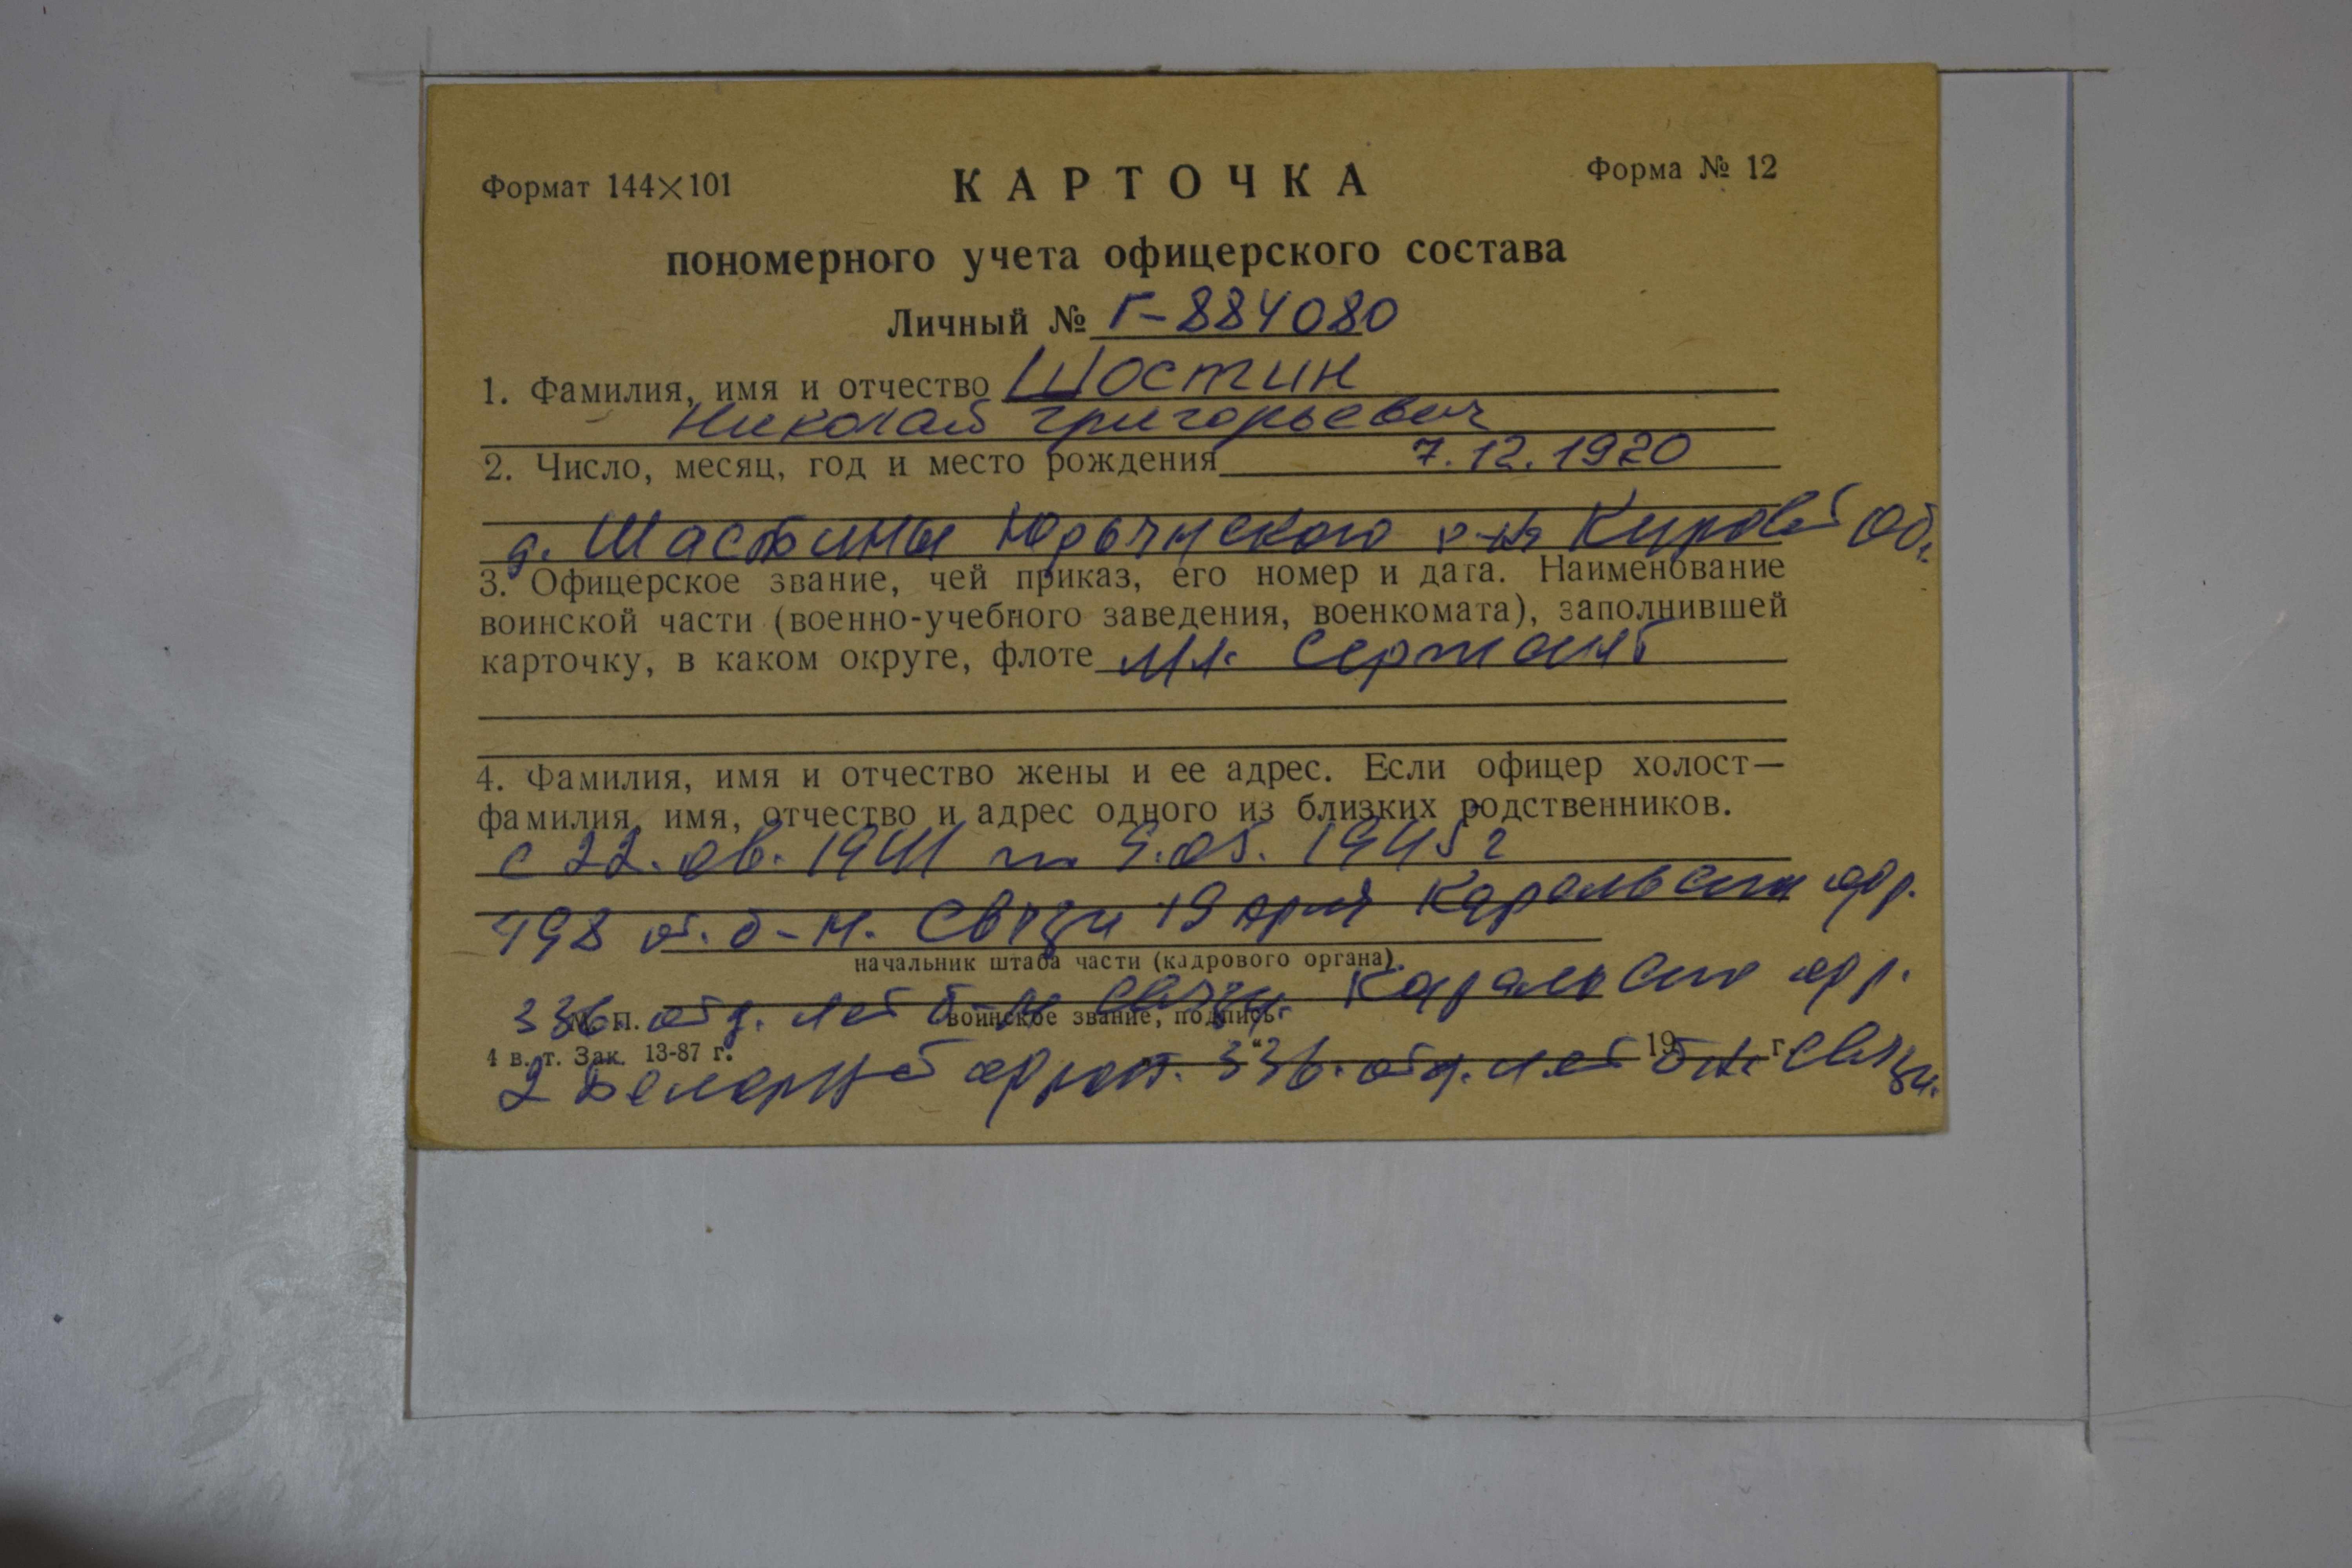 Формат 144×101 КАРТОЧКА Форма № 12
пономерного учета офицерского состава
Личный № Г-884080
1. Фамилия, имя и отчество Шостин
Николай Григорьевич
2. Число, месяц, год и место рождения 7.12.1920
д. Шастины Юрьянского р-на Кировой об.
3. Офицерское звание, чей приказ, его номер и дата. Наименование
воинской части (военно-учебного заведения, военкомата), заполнившей
карточку, в каком округе, флоте мл. сержант
4. Фамилия, имя и отчество жены и ее адрес. Если офицер холост—
фамилия, имя, отчество и адрес одного из близких родственников.
с 22.06.1941 по 9.05.1945 г
498 от. б-н. связи 19 армия фр.
начальник штаба части (кадрового органа).
336. отд. б-н связи. фр.
М. П. воинское звание, подпись
4 в. т. Зак. 13-87 г. “ 19 г.
2 фронт. 336. отд. связи.